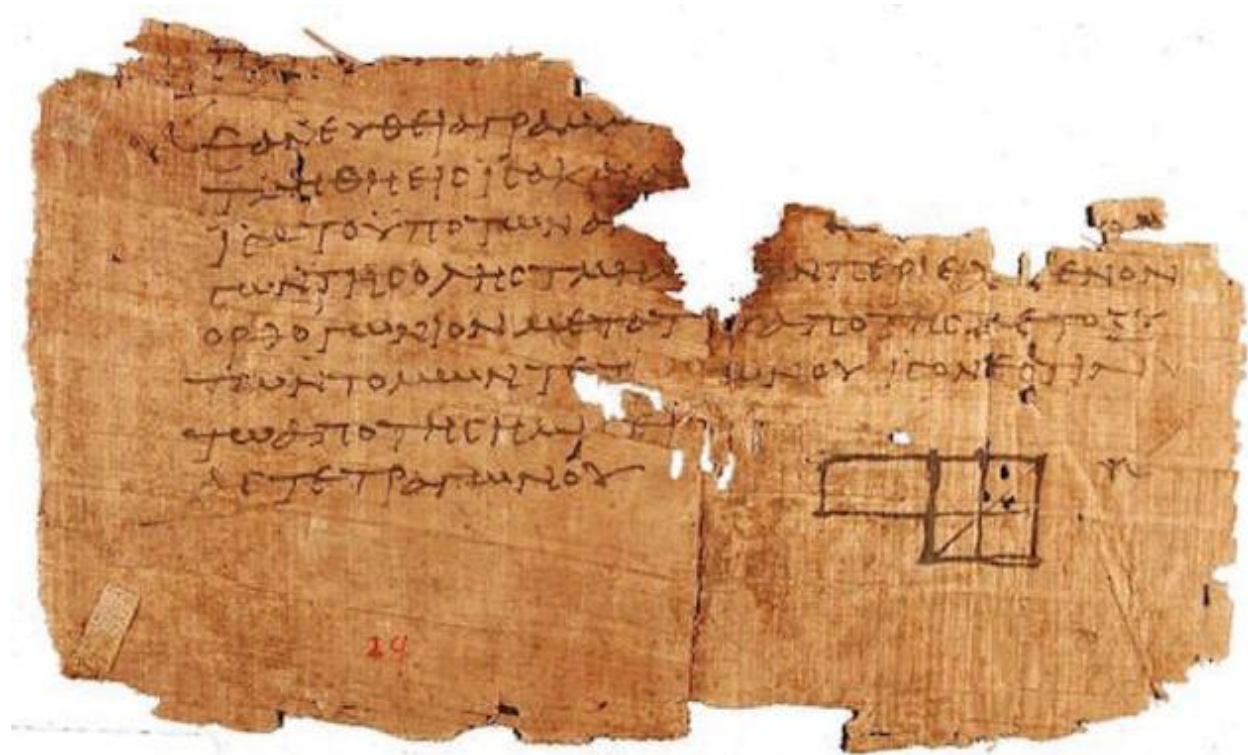 ΕΑΝΕΥΘΕΙΑΓΡΑΜΜ
ΤΜΗΘΗΕΙϹΙϹΑΚΑΙΑ
ΙϹΑΤΟΥΠΟΤΩΝΑ
ϹΩΝΤΗϹΟΛΗϹΤΜΗΜ ΩΝΠΕΡΙΕΧ ΕΝΟΝ
ΟΡΘΟΓΩΝΙΟΝΜΕΤΑΤ ΑΠΟΤΗϹΜΕΤΟΞΥ
ΤΩΝΤΟΜΩΝΤΕΤ ΩΝΟΥΙϹΟΝΕϹΤΙΝ
ΤΩΑΠΟΤΗϹΗΜΙ
ΑϹΤΕΤΡΑΓΩΝΟΥ
29